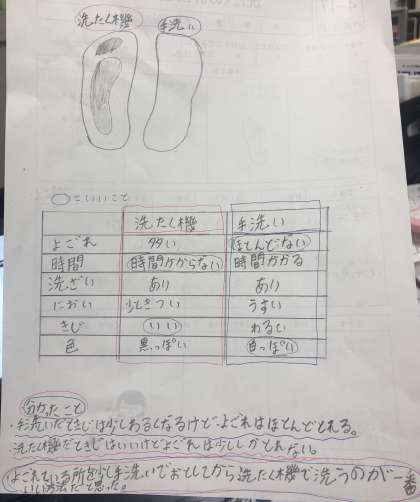 洗たく機 手洗い
○=いいこと
洗たく機 手洗い
よごれ 多い ほとんどない
時間 時間がかからない 時間かかる
洗ざい あり あり
におい 少しきつい うすい
きじ いい わるい
色 黒っぽい 白っぽい
分かたこと
・手洗いだときじは少しわるくなるけどよごれはほとんどとれる。
・洗たく機だときじはいいけどよごれは少ししかとれない。
よごれている所を少し手洗いでおとしてから洗たく機で洗うのが一番
いい方法だと思った。